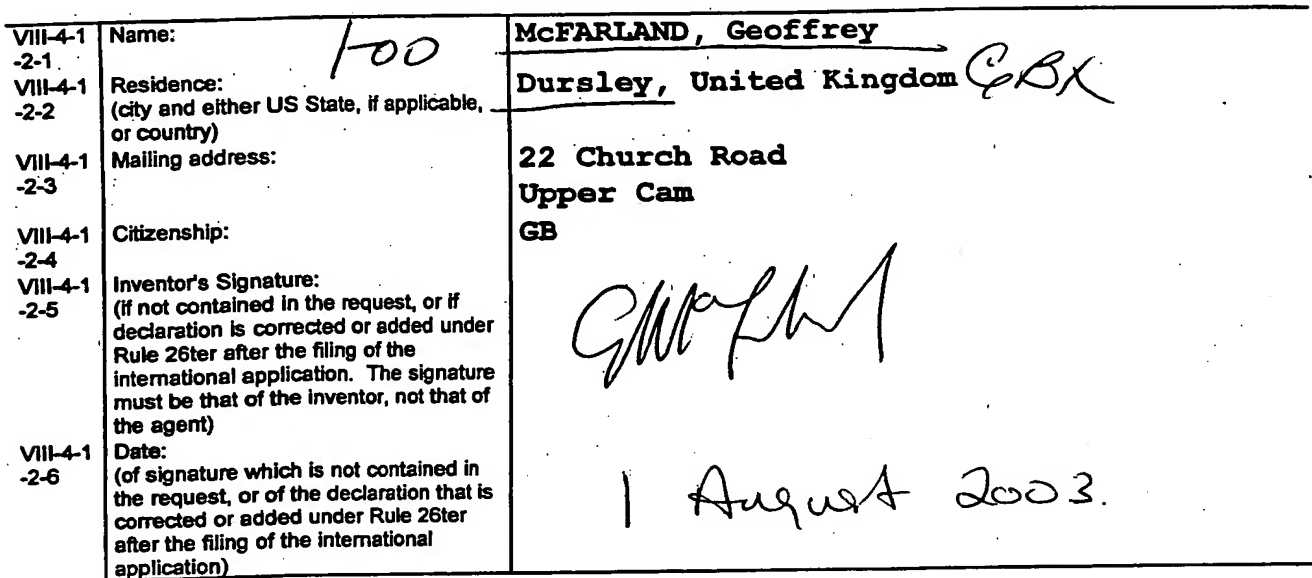 VIII-4-1 Name: 1-00 McFARLAND, Geoffrey
-2-1
VIII-4-1 Residence: Dursley, United Kingdom GBX
-2-2 (city and either US State, if applicable,
or country)
VIII-4-1 Mailing address: 22 Church Road
-2-3 Upper Cam
VIII-4-1 Citizenship: GB
-2-4
VIII-4-1 Inventor's Signature:
-2-5 (if not contained in the request, or if
declaration is corrected or added under
Rule 26ter after the filing of the
international application. The signature
must be that of the inventor, not that of
the agent)
VIII-4-1 Date:
-2-6 (of signature which is not contained in
the request, or of the declaration that is 1 August 2003.
corrected or added under Rule 26ter
after the filing of the international
application)